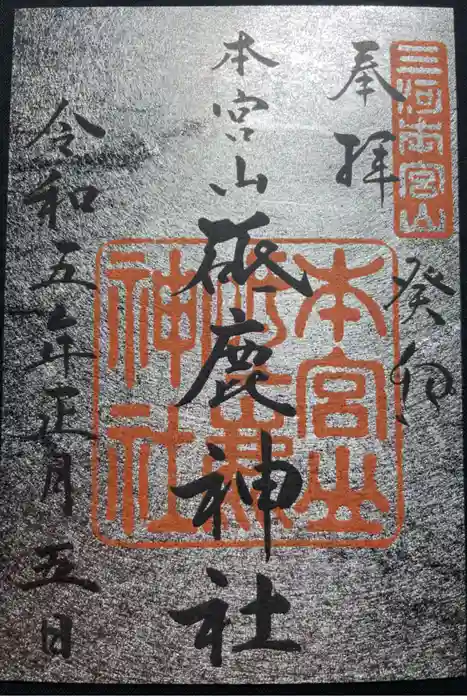 三河本宮山
奉拝
癸卯
本宮山砥鹿神社
本宮山
神社
令和五年正月五日